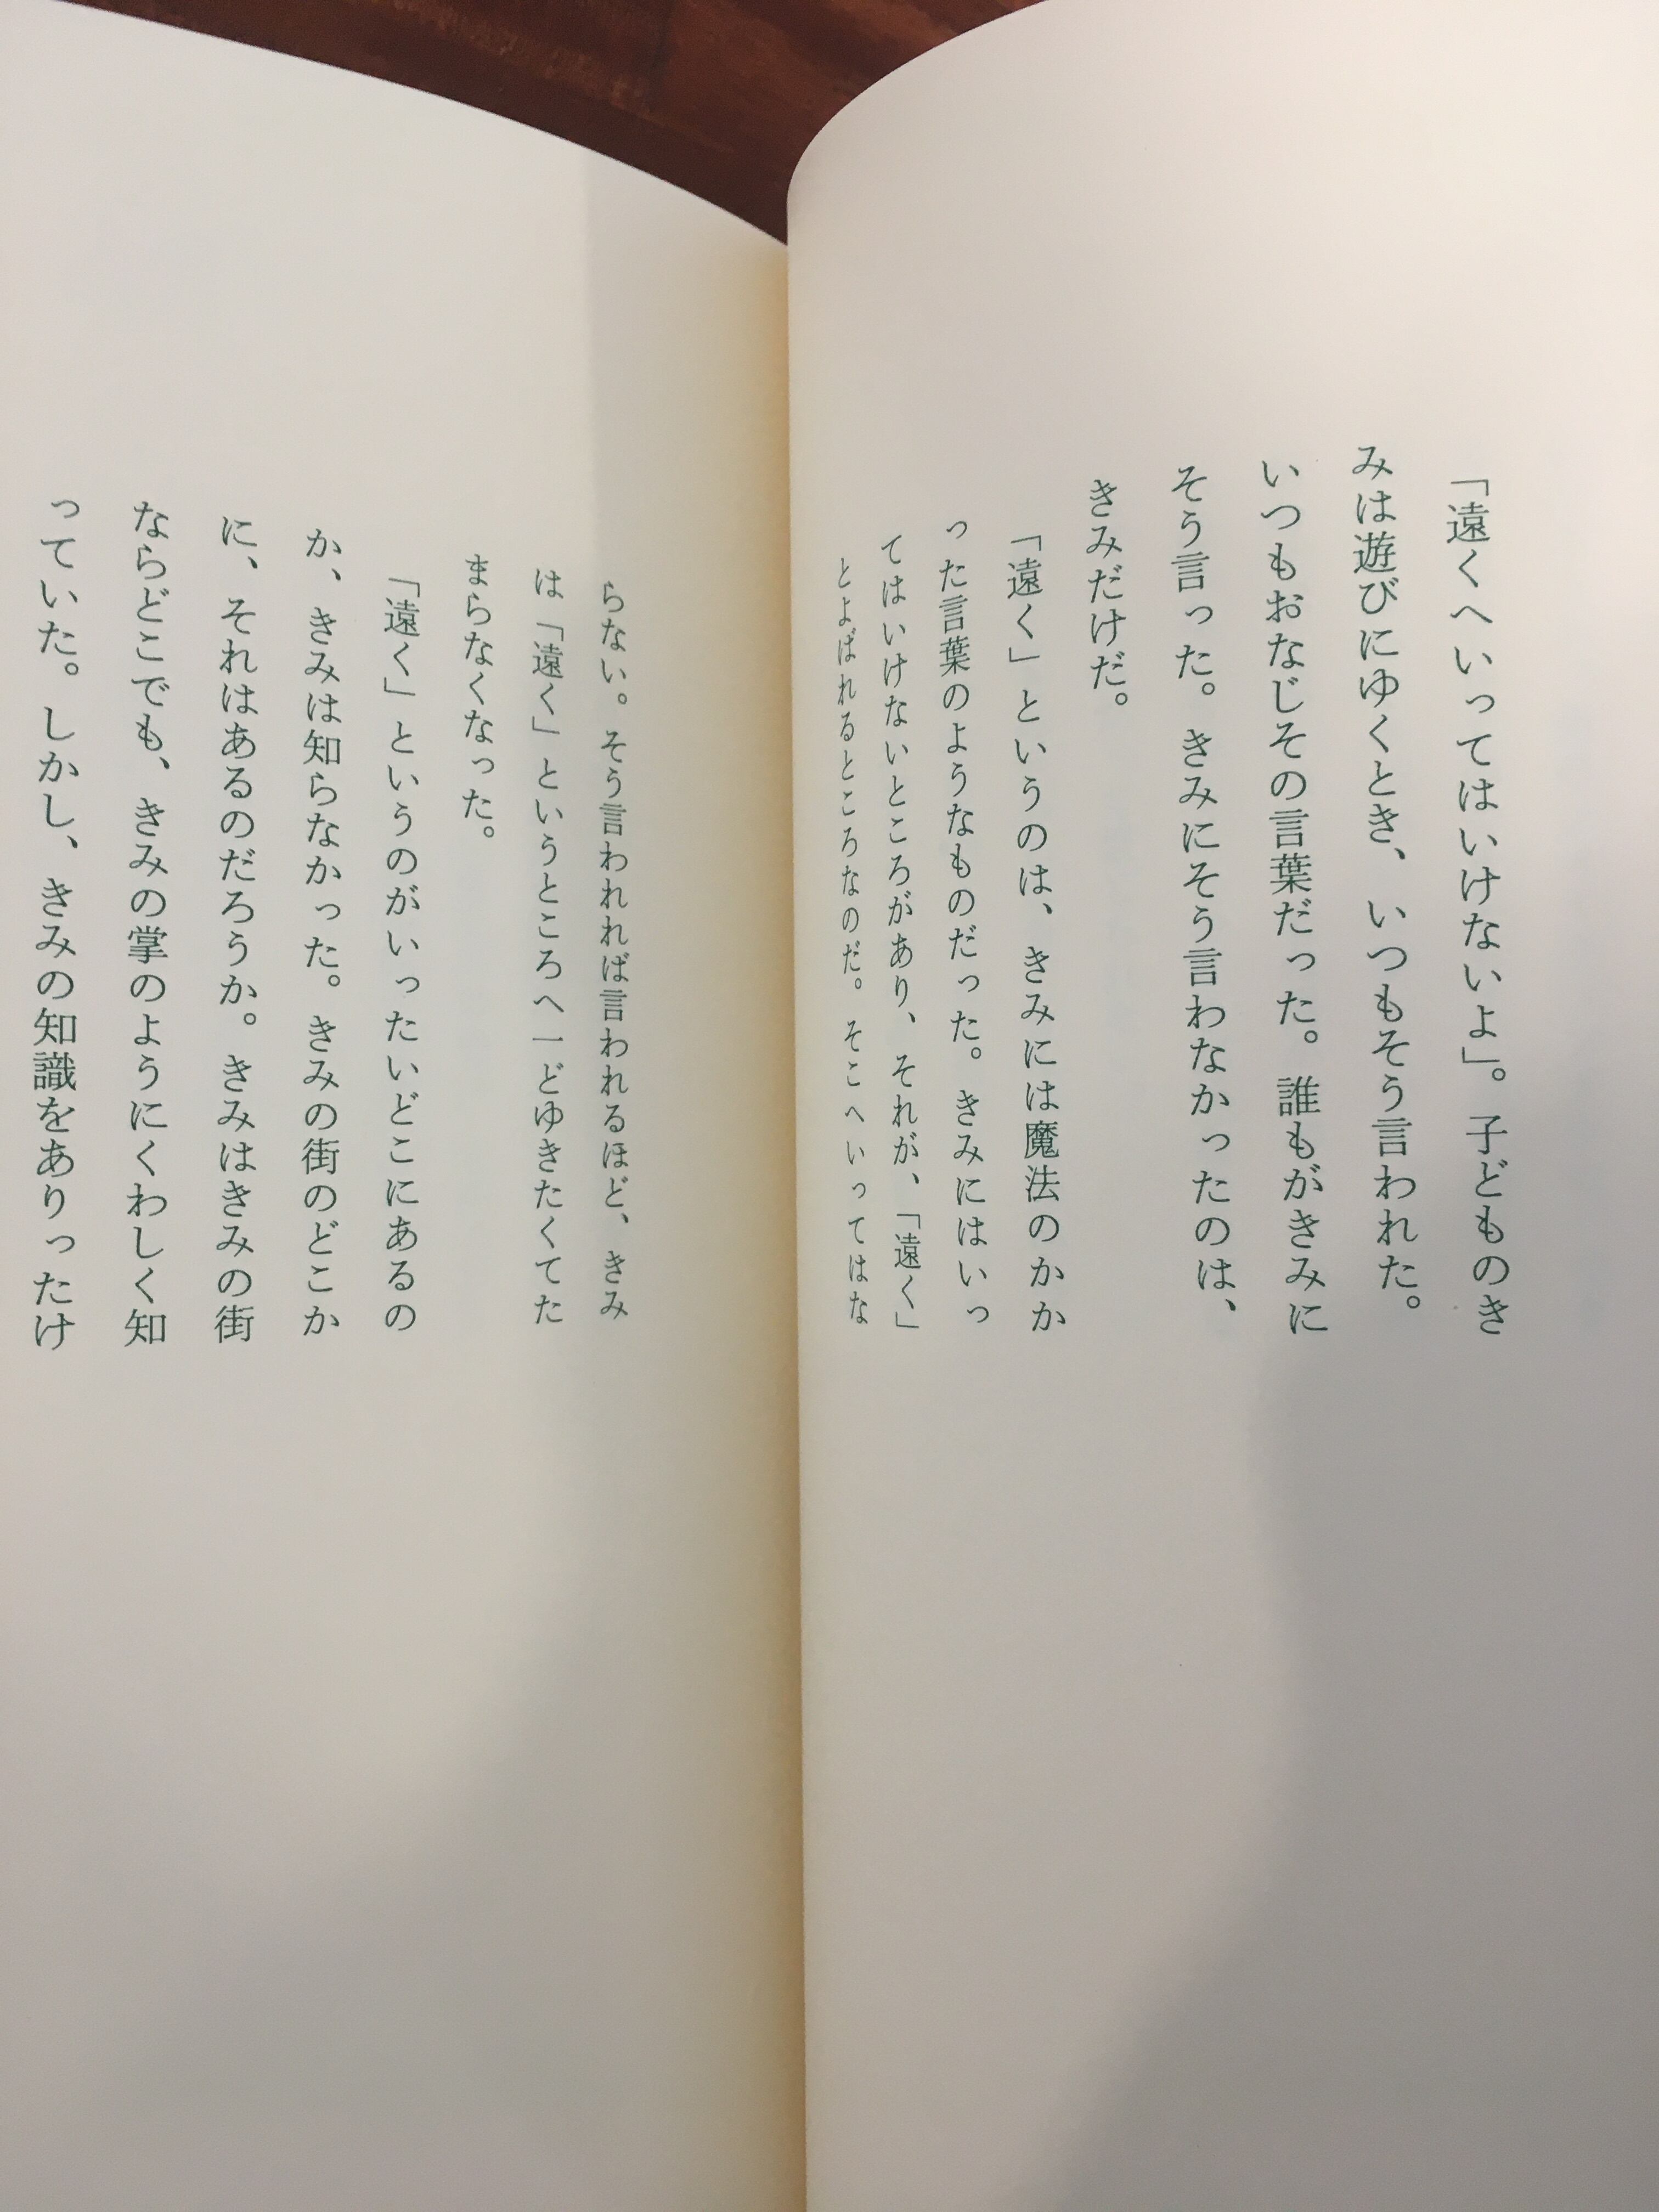 「遠くへいってはいけないよ」。子どものき
みは遊びにゆくとき、いつもそう言われた。
いつもおなじその言葉だった。誰もがきみに
そう言った。きみにそう言わなかったのは、
きみだけだ。
「遠く」というのは、きみには魔法のかか
った言葉のようなものだった。きみにはいっ
てはいけないところがあり、それが、「遠く」
とよばれるところなのだ。そこへいってはな
らない。そう言われれば言われるほど、きみ
は「遠く」というところへ一どゆきたくてた
まらなくなった。
「遠く」というのがいったいどこにあるの
か、きみは知らなかった。きみの街のどこか
に、それはあるのだろうか。きみはきみの街
ならどこでも、きみの掌のようにくわしく知
っていた。しかし、きみの知識をありったけ